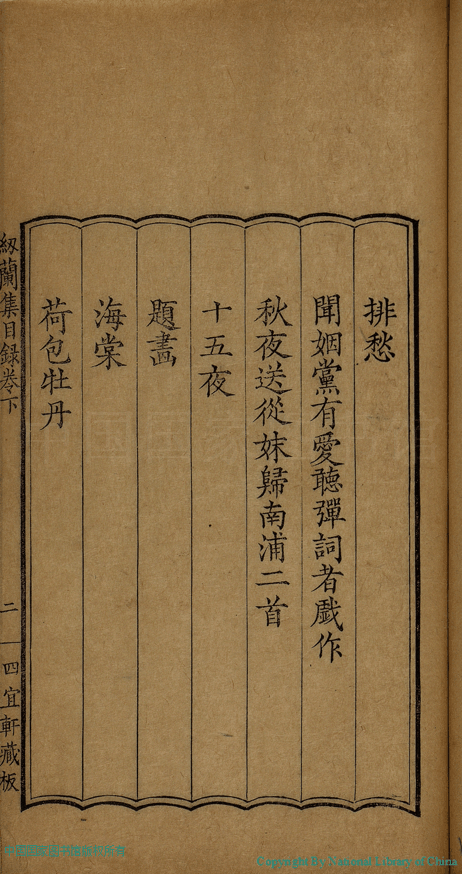 排愁
聞姻黨有愛聽彈詞者戲作
秋夜送從妹歸南浦二首
十五夜
題畫
海棠
荷包牡丹
紉蘭集目録卷下
二
四宜軒藏板
Copyright By National Library of China